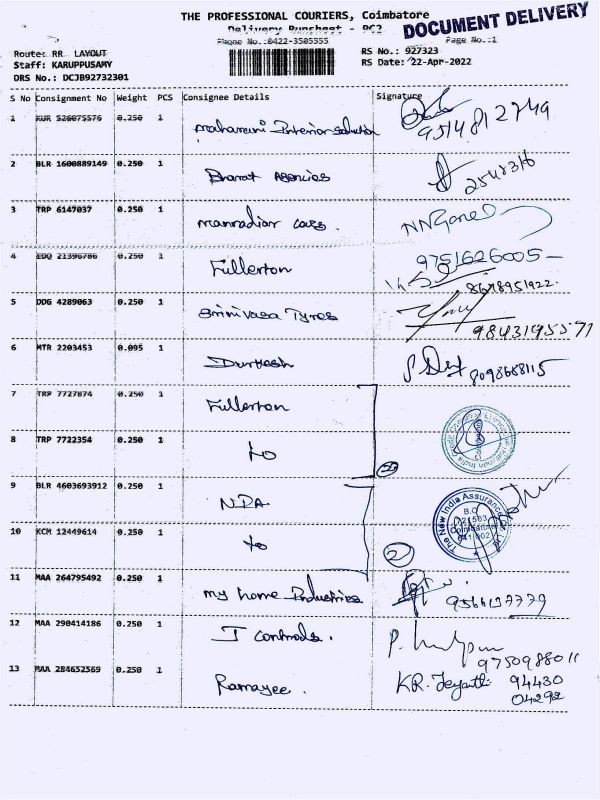 THE PROFESSIONAL COURIERS, Coimbatore
DOCUMENT DELIVERY
Delivery Runsheet - PC2
Phone No.:0422-3505555
Page No.:1
Route: RR LAYOUT
RS No.: 927323
Staff: KARUPPUSAMY
RS Date: 22-Apr-2022
DRS No.: DCJB92732301
S No Consignment No Weight PCS Consignee Details Signature
1 KUR 526075576 0.250 1 Maharani Interior Solution 9514812749
2 BLR 1600889149 0.250 1 Bharat Agencies 2548316
3 TRP 6147037 0.250 1 Manradiar Cars.
4 EDQ 21396786 0.250 1 Fullerton 9751626005
8678951922
5 DDG 4289063 0.250 1 Srinivasa Tyres 9843195571
6 MTR 2203453 0.095 1 Durkesh 8098688115
7 TRP 7727874 0.250 1 Fullerton
8 TRP 7722354 0.250 1 to
9 BLR 4603693912 0.250 1 NDA
The New India Assurance
B.O.
721503
Coimbatore
641 002
10 KCM 12449614 0.250 1 to 2
11 MAA 264795492 0.250 1 My home Industries 9566137779
12 MAA 290414186 0.250 1 J controls.
9750988011
13 MAA 284652569 0.250 1 Ramayee. K.R. Jeyanthi 94430
04292